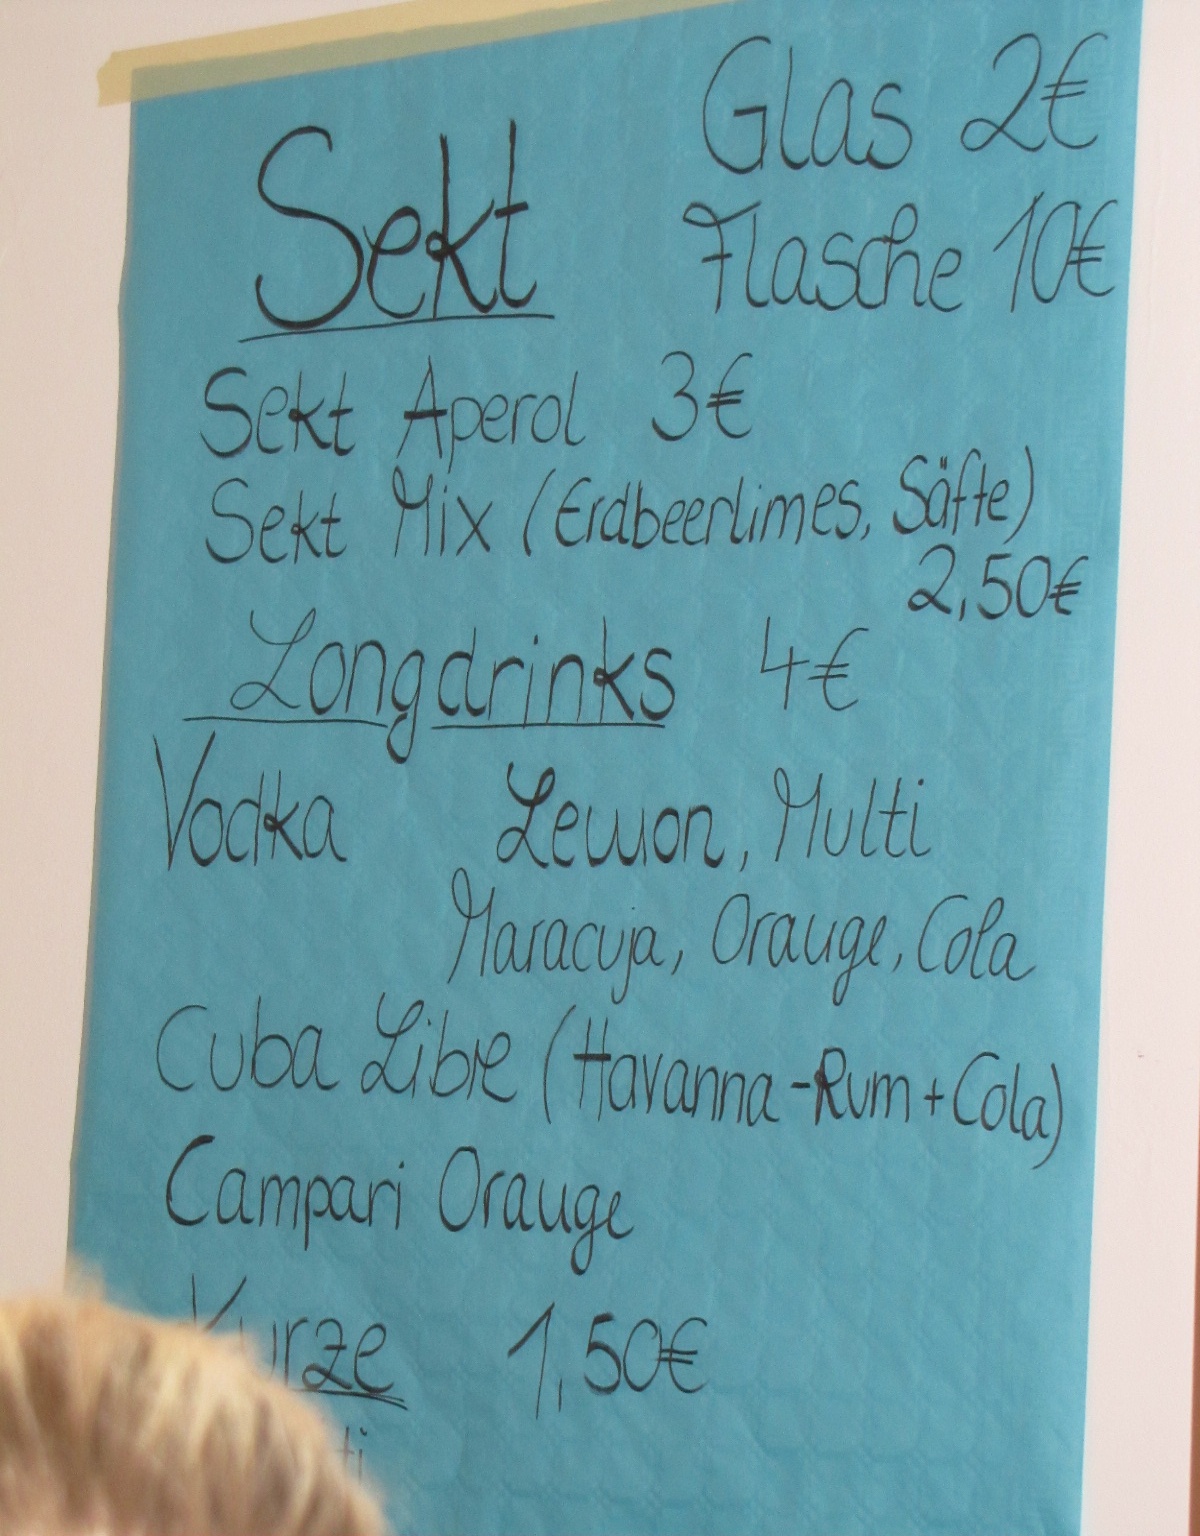 Sekt Glas 2€
Flasche 10€
Sekt Aperol 3€
Sekt Mix (Erdbeerlimes, Säfte)
2,50€
Longdrinks 4€
Vodka Lemon, Multi
Maracuja, Orange, Cola
Cuba Libre (Havanna-Rum+Cola)
Campari Orange
Kurze 1,50€